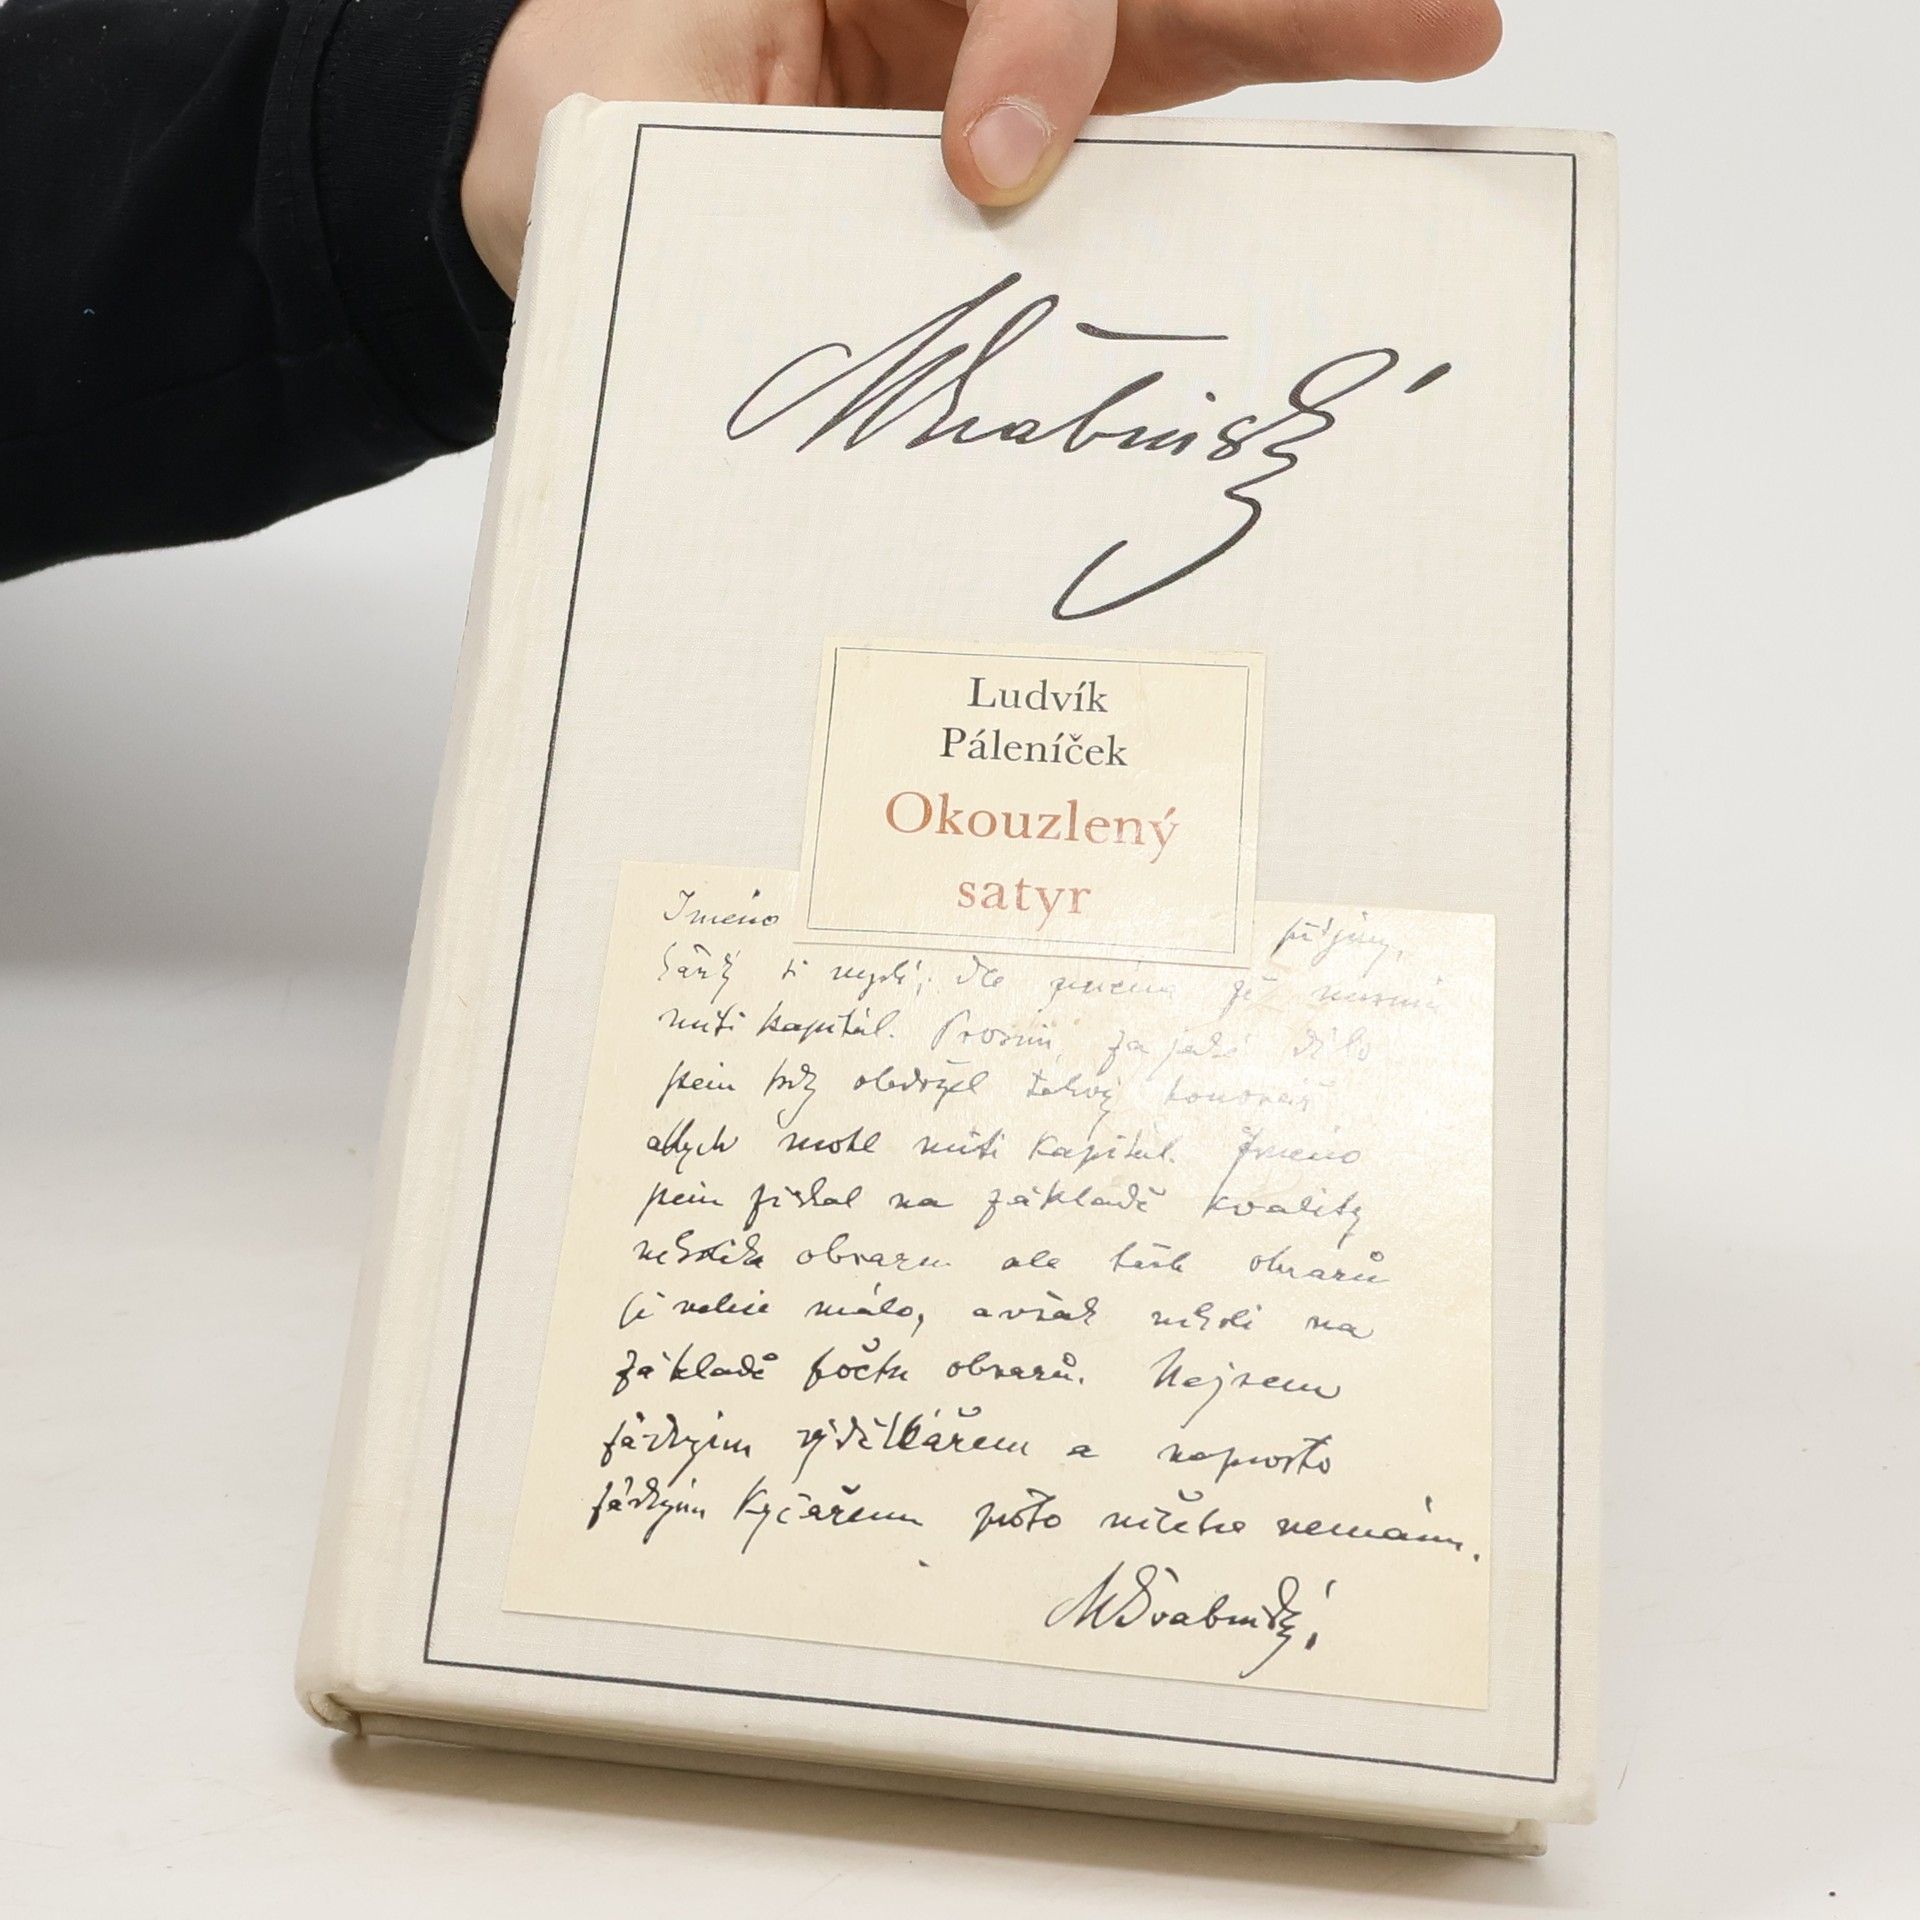 MŠvabinský
Ludvík
Páleníček
Okouzlený
satyr
Jméno příjmy,
každý si myslí, dle jména že musím
míti kapitál. Prosím, za jaké dílo
jsem kdy obdržel takový honorář
abych mohl míti kapitál. Jméno
jsem získal na základě kvality
několika obrazů ale těch obrazů
je velice málo, avšak nikoli na
základě počtu obrazů. Nejsem
žádným výdělkářem a naprosto
žádným kýčařem proto ničeho nemám.
MŠvabinský